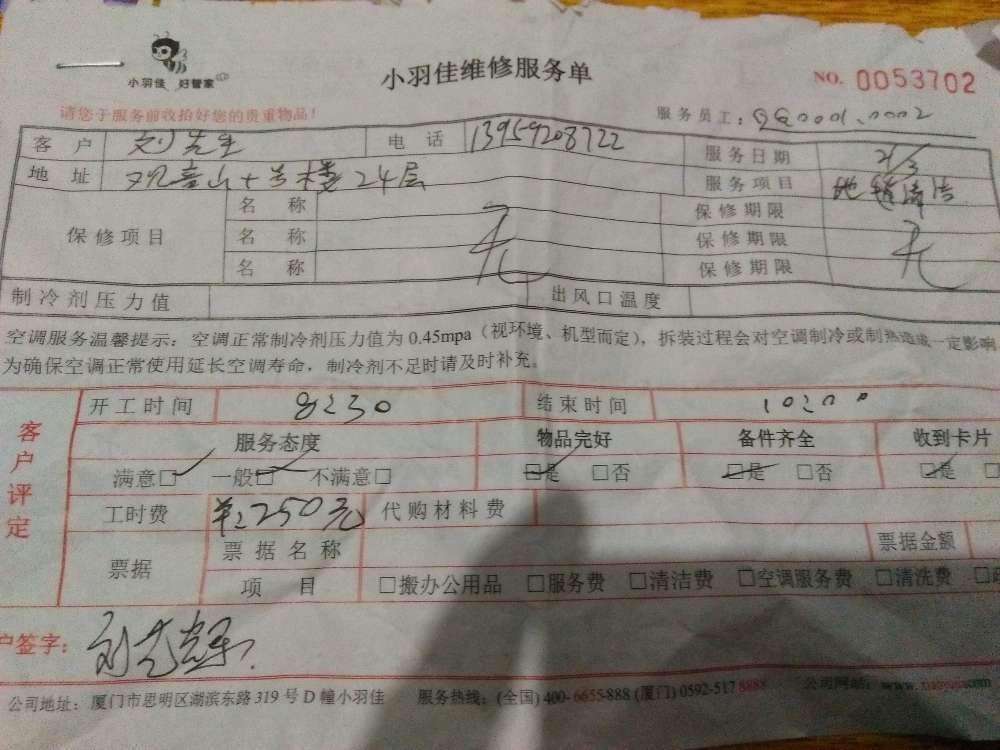 小羽佳 好管家
小羽佳维修服务单
NO. 0053702
请您于服务前收拾好您的贵重物品!
服务员工:
客户 刘先生 电话 13959208722 服务日期 21/3
地址 观音山十号楼24层 服务项目 地毯清洁
保修项目 名称 无 保修期限 无
名称 保修期限
名称 保修期限
制冷剂压力值 出风口温度
空调服务温馨提示:空调正常制冷剂压力值为 0.45mpa(视环境、机型而定),拆装过程会对空调制冷或制热造成一定影响
为确保空调正常使用延长空调寿命,制冷剂不足时请及时补充。
客户评定
开工时间 8:30 结束时间 10:00
服务态度 物品完好 备件齐全 收到卡片
满意□ 一般□ 不满意□ □是 □否 □是 □否 □是 □
工时费 ¥:250元 代购材料费
票据 票据名称 票据金额
项目 □搬办公用品 □服务费 □清洁费 □空调服务费 □清洗费 □
户签字:
公司地址:厦门市思明区湖滨东路 319 号 D 幢小羽佳 服务热线:(全国) 400-6655-888 (厦门) 0592-517 8888 公司网站:www.xiaoyujia.com